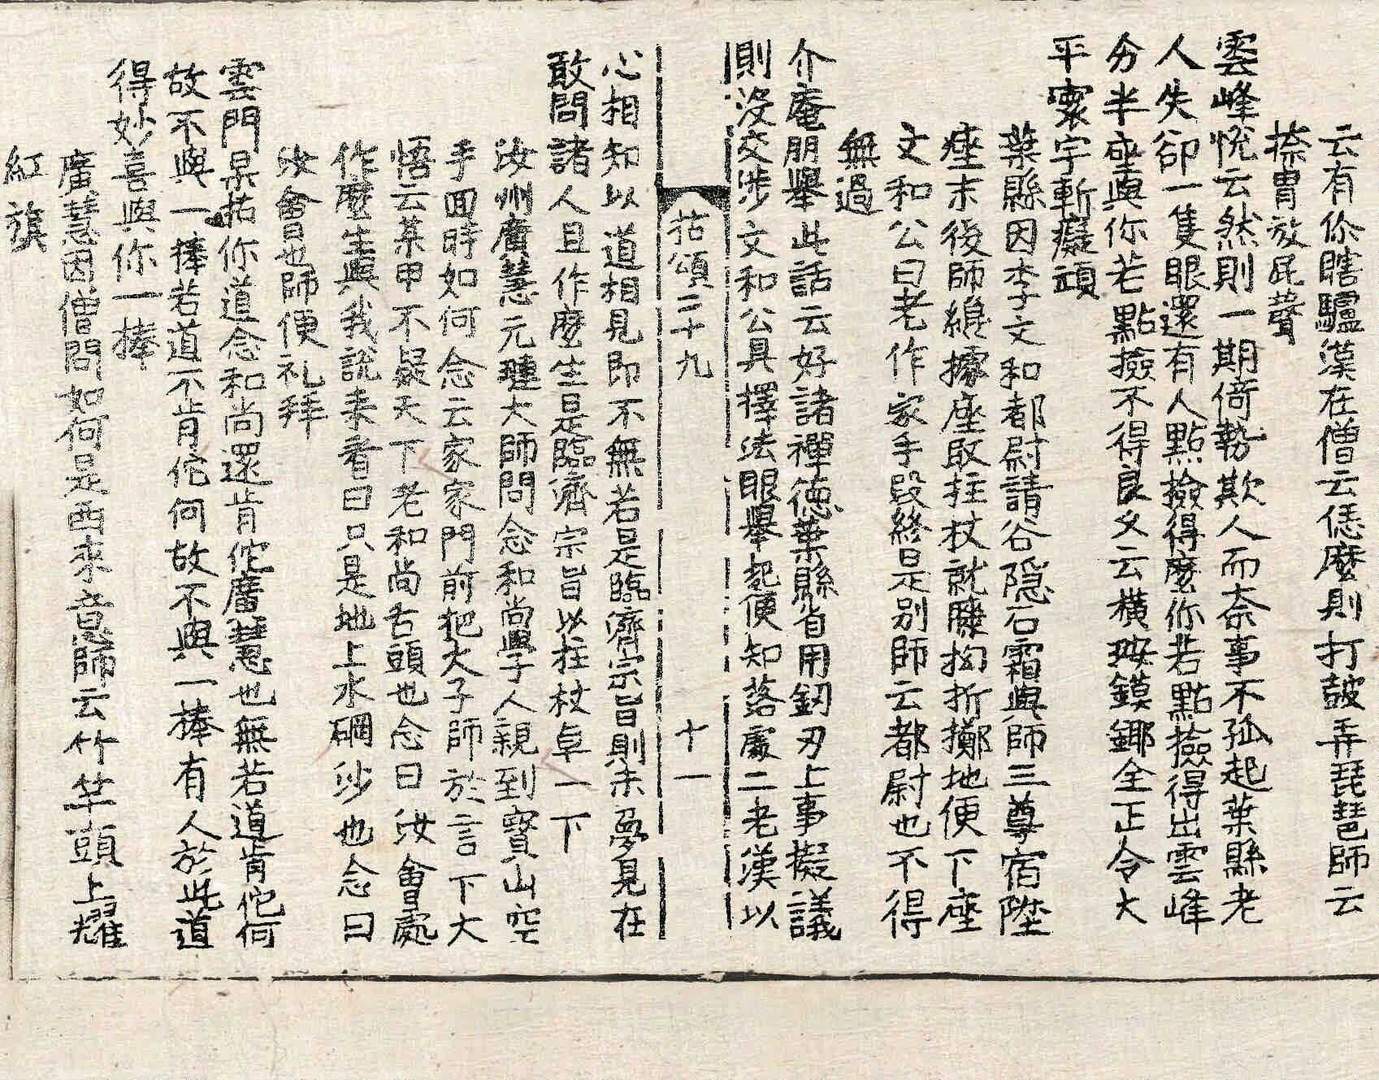 云有你瞎驢漢在僧云恁麼則打皷弄琵琶師云
捺胃放屁聲
雲峰悅云然則一期倚勢欺人而柰事不孤起葉縣老
人失卻一隻眼還有人點撿得麼你若點撿得出雲峰
分半座與你若點撿不得良久云橫按鏌鎁全正令大
平寰宇斬癡頑
葉縣因李文和都尉請谷隱石霜與師三尊宿陞
座末後師纔據座取拄杖就膝拗折擲地便下座
文和公曰老作家手段終是别師云都尉也不得
無過
介庵朋舉此話云好諸禪德葉縣省用劒刃上事擬議
則没交涉文和公具擇法眼舉起便知落處二老漢以
拈頌二十九
十一
心相知以道相見即不無若是臨濟宗旨則未夢見在
敢問諸人且作麼生是臨濟宗旨以拄杖卓一下
汝州廣慧元璉大師問念和尚學人親到寶山空
手囬時如何念云家家門前把火子師於言下大
悟云某甲不疑天下老和尚舌頭也念曰汝會處
作麼生與我說来看曰只是地上水碙沙也念曰
汝會也師便礼拜
雲門杲拈你道念和尚還肯佗廣慧也無若道肯佗何
故不與一捧若道不肯佗何故不與一捧有人於此道
得妙喜與你一捧
廣慧因僧問如何是西來意師云竹竿頭上耀
紅旗